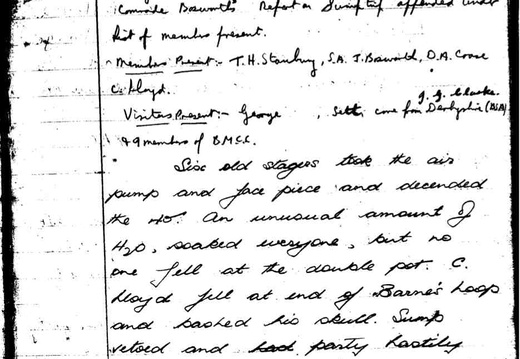 Comrade Bosworth's Report on Sump trip appended under
list of members present.
Members Present:- T.H. Stanbury, S.A.J. Bosworth, D.A. Coase
C. Lloyd. J.J. Clarke.
Visitors Present:- George , Setti, cave from Derbyshire (BSA)
& 9 members of B.M.S.S.
Six old stagers took the air
pump and face piece and decended
the 40'. An unusual amount of
H2O, soaked everyone, but no
one fell at the double pot. C.
Lloyd fell at end of Barne's Loop
and bashed his skull. Sump
vetoed and had party hastily